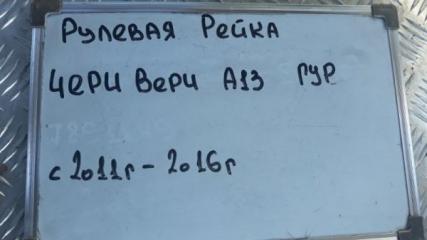 Рулевая Рейка
Чери Вери А13 ГУР
с 2011г - 2016г